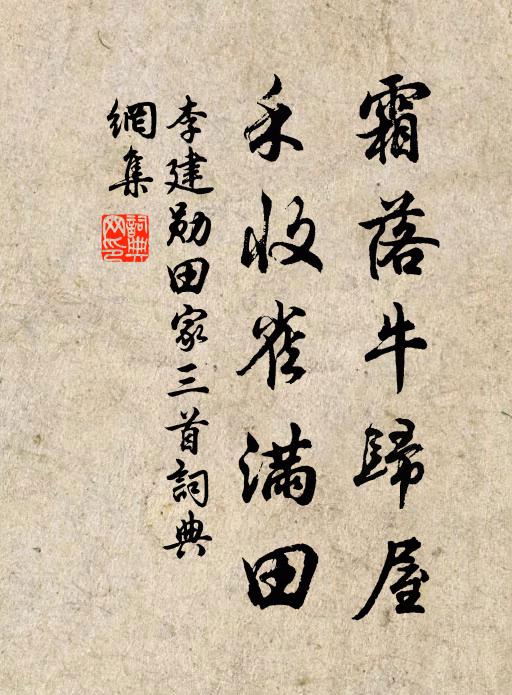 霜落牛歸屋
禾收雀滿田
李建勛田家三首詞典
網集
詞典網印